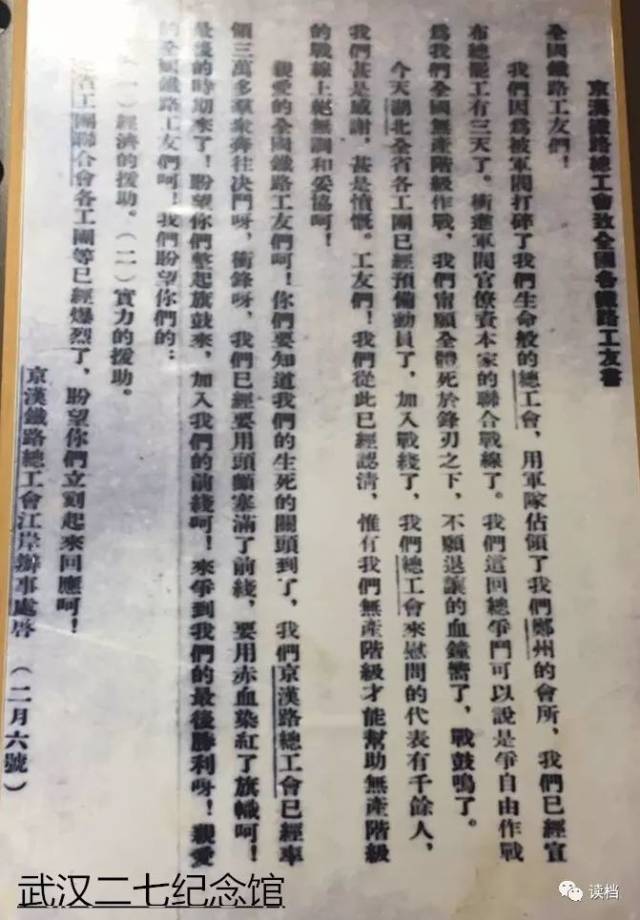 京漢鐵路總工會致全國各鐵路工友書
全國鐵路工友們！
我們因爲被軍閥打碎了我們生命般的總工會，用軍隊佔領了我們鄭州的會所，我們已經宣
布總罷工有三天了。衝進軍閥官僚資本家的聯合戰線了。我們這回總爭鬥可以說是爭自由作戰
爲我們全國無產階級作戰，我們甯願全體死於鋒刃之下，不願退讓的血鐘響了，戰鼓鳴了。
今天湖北全省各工團已經預備動員了，加入戰綫了，我們總工會來慰問的代表有千餘人，
我們甚是感謝，甚是憤慨。工友們！我們從此已經認清，惟有我們無產階級才能幫助無產階級
的戰線上絕無調和妥協呵！
親愛的全國鐵路工友們呵！你們要知道我們的生死的關頭到了，我們京漢路總工會已經率
領三萬多羣衆奔往决鬥呀，衝鋒呀，我們已經要用頭顱塞滿了前綫，要用赤血染紅了旗幟呵！
最後的時期來了！盼望你們整起旗鼓來，加入我們的前綫呵！來爭到我們的最後勝利呀！親愛
的全國鐵路工友們呵！我們盼望你們的：
（一）經濟的援助。（二）實力的援助。
省工團聯合會各工團等已經爆烈了，盼望你們立刻起來回應呵！
京漢鐵路總工會江岸辦事處啓（二月六號）
武汉二七纪念馆
读档